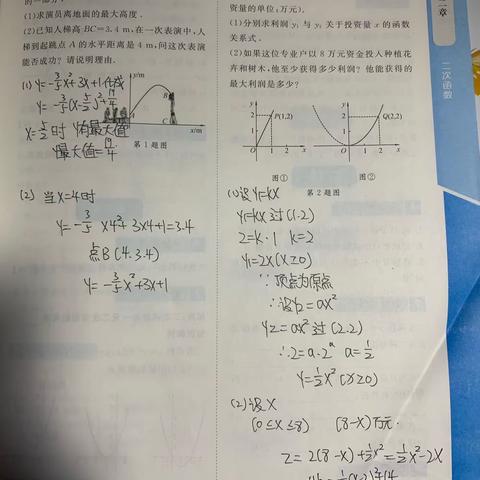 (1)求演员离地面的最大高度.
(2)已知人梯高BC=3.4 m,在一次表演中,人
梯到起跳点A的水平距离是4 m,问这次表演
能否成功?请说明理由.
(1) y=-3/5x²+3x+1
y=-3/5(x-5/2)²+19/4
x=5/2时 y有最大值
y最大值=19/4
y/m
B
A
C
x/m
第1题图
(2) 当x=4时
y=-3/5×4²+3×4+1=3.4
点B(4.3.4)
y=-3/5x²+3x+1
资量的单位:万元).
(1)分别求利润y₁与y₂关于投资量x的函数
关系式.
(2)如果这位专业户以8万元资金投入种植花
卉和树木,他至少获得多少利润?他能获得的
最大利润是多少?
y
2
P(1,2)
1
O
1 2 x
图①
y
2
Q(2,2)
1
O
1 2 x
图②
第2题图
(1)设y₁=kx
y₁=kx过(1.2)
2=k·1 k=2
y₁=2x(x≥0)
∵顶点为原点
∴设y₂=ax²
y₂=ax²过(2.2)
∴2=a·2² a=1/2
y=1/2x²(x≥0)
(2)设x
(0≤x≤8) (8-x)万元.
z=2(8-x)+1/2x²=1/2x²-2x
章
二次函数